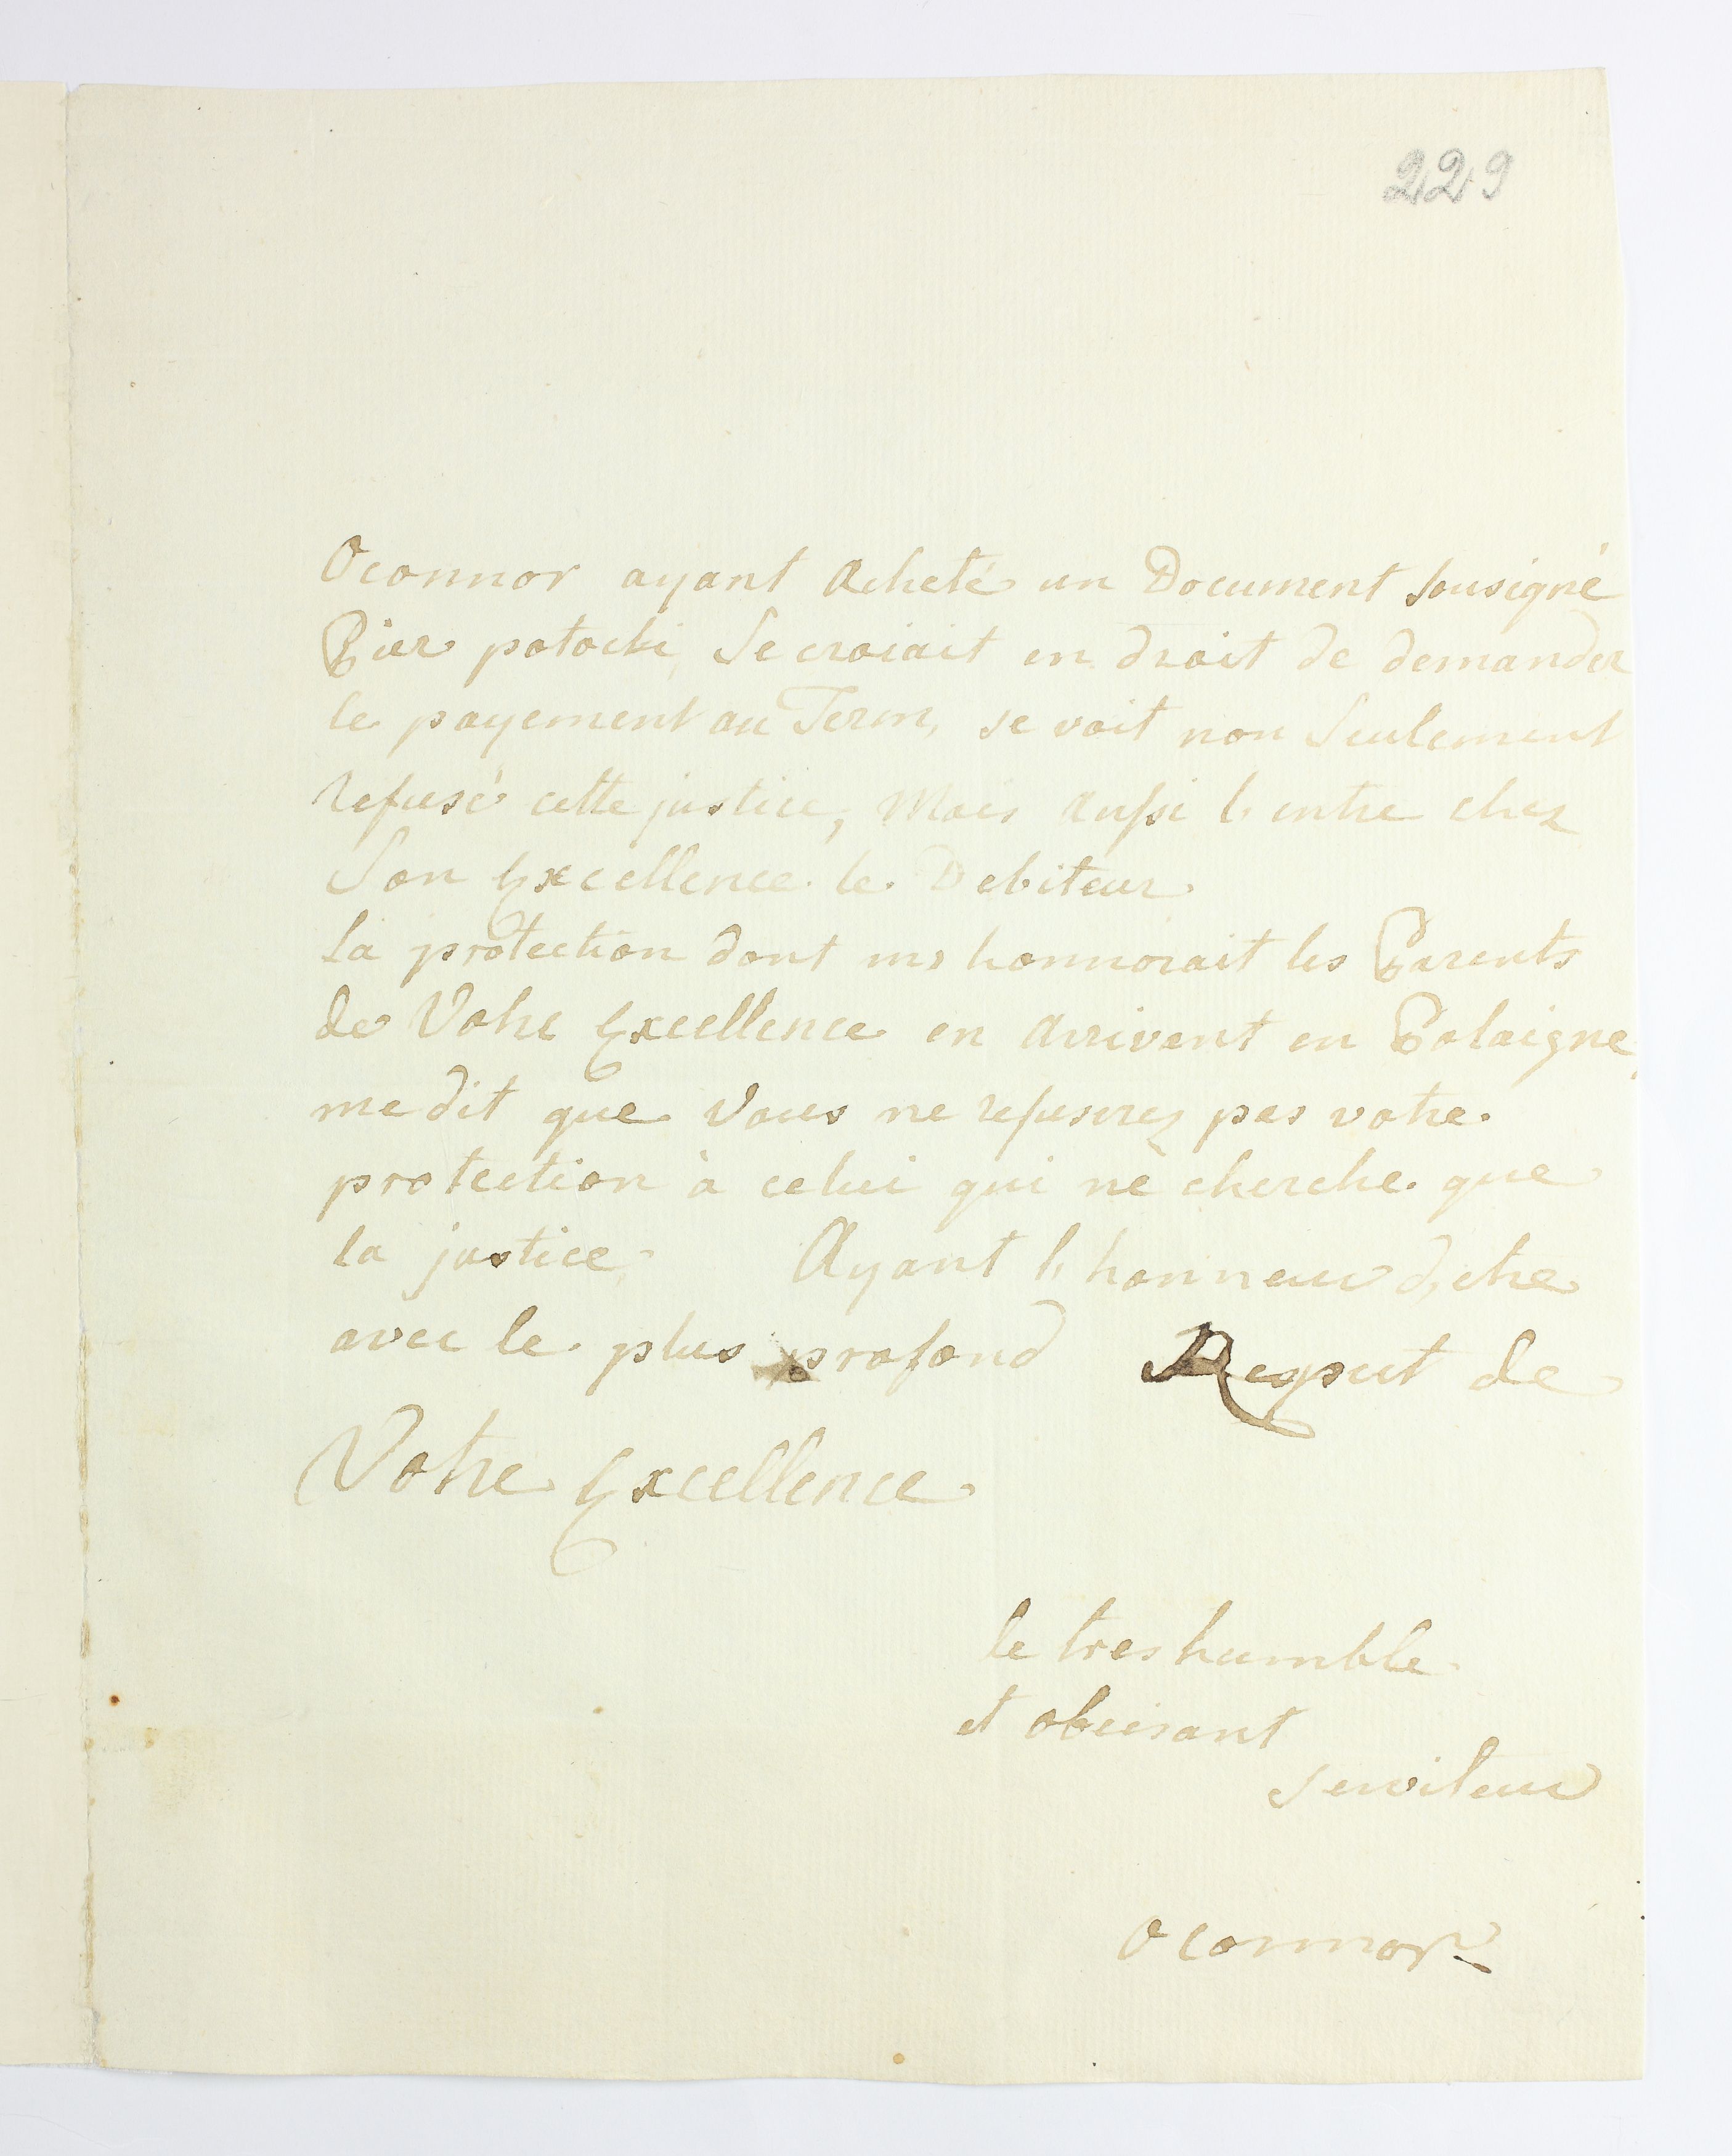 229
Oconnor ayant Acheté un Document sousigné
Pier potocki, Se croiait en droit de demander
le payement au Term, se voit non Seulement
refusé cette justice, Mais Aussi l, entre chez
Son Excellence le Debiteur
la protection dont m, honnorait les Parents
de Votre Excellence en Arrivent en Polaigne,
me dit que Vous ne refuserez pas votre
protection à celui qui ne cherche que
la justice. Ayant l, honneur d, etre
avec le plus profond Respect de
Votre Excellence
le tres humble
et obeisant
serviteur
Oconnor